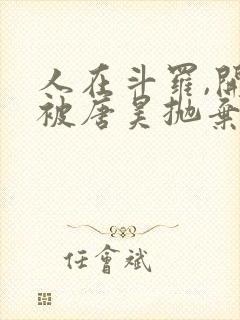 人在斗罗,開
被唐昊抛棄
任會斌